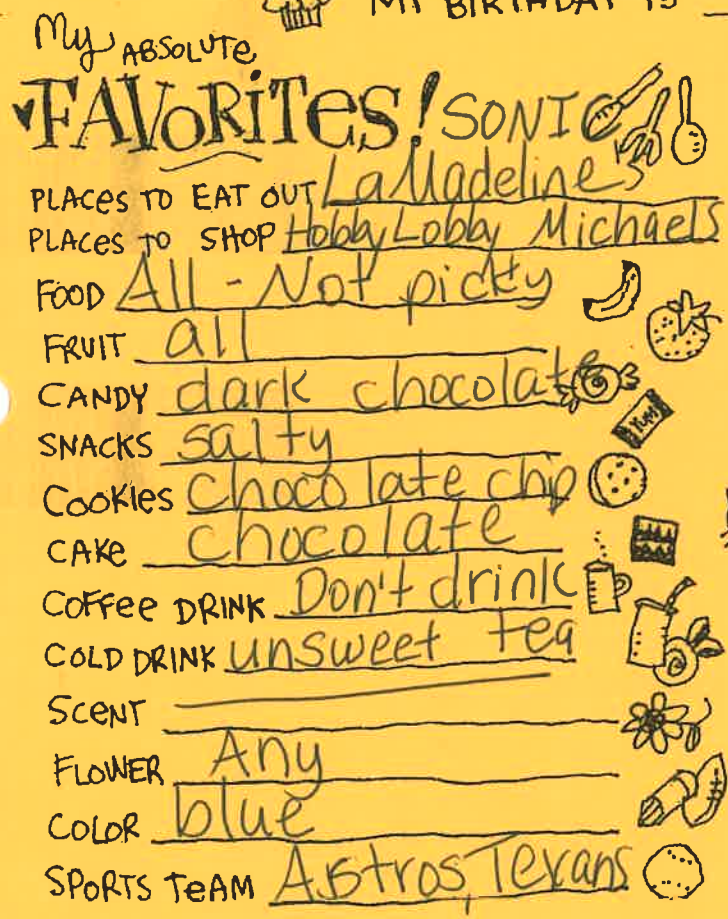 MY BIRTHDAY IS
My ABSOLUTE
FAVORITES! SONIC
PLACES TO EAT OUT La Madeline's
PLACES TO SHOP Hobby Lobby Michaels
FOOD All - Not picky
FRUIT all
CANDY dark chocolate
YUM!
SNACKS salty
COOKIES chocolate chip
CAKE chocolate
COFFEE DRINK Don't drink
COLD DRINK unsweet tea
SCENT
FLOWER Any
COLOR blue
SPORTS TEAM Astros, Texans